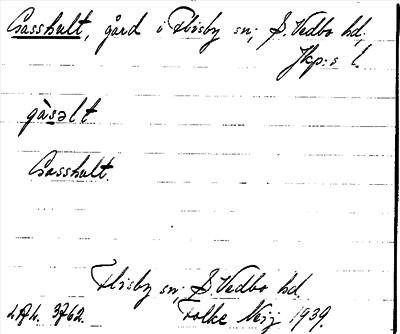 Gasshult, gård i Flisby sn, S. Vedbo hd,
Jkp:s l.
gàsəlt
Gasshult.
Flisby sn, S Vedbo hd.
Folke Nij 1939.